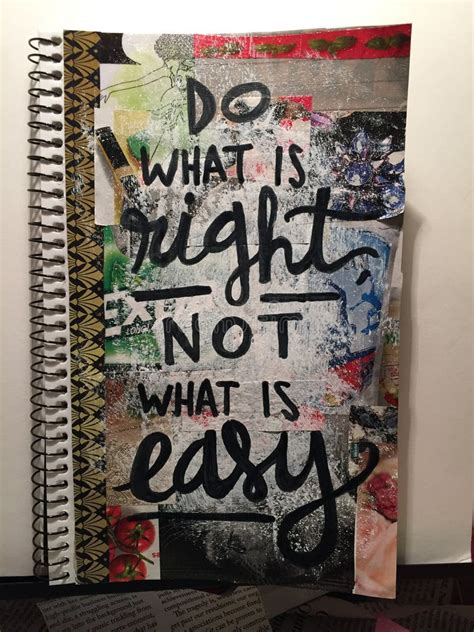 DO
WHAT IS
right,
NOT
WHAT IS
easy
EXT